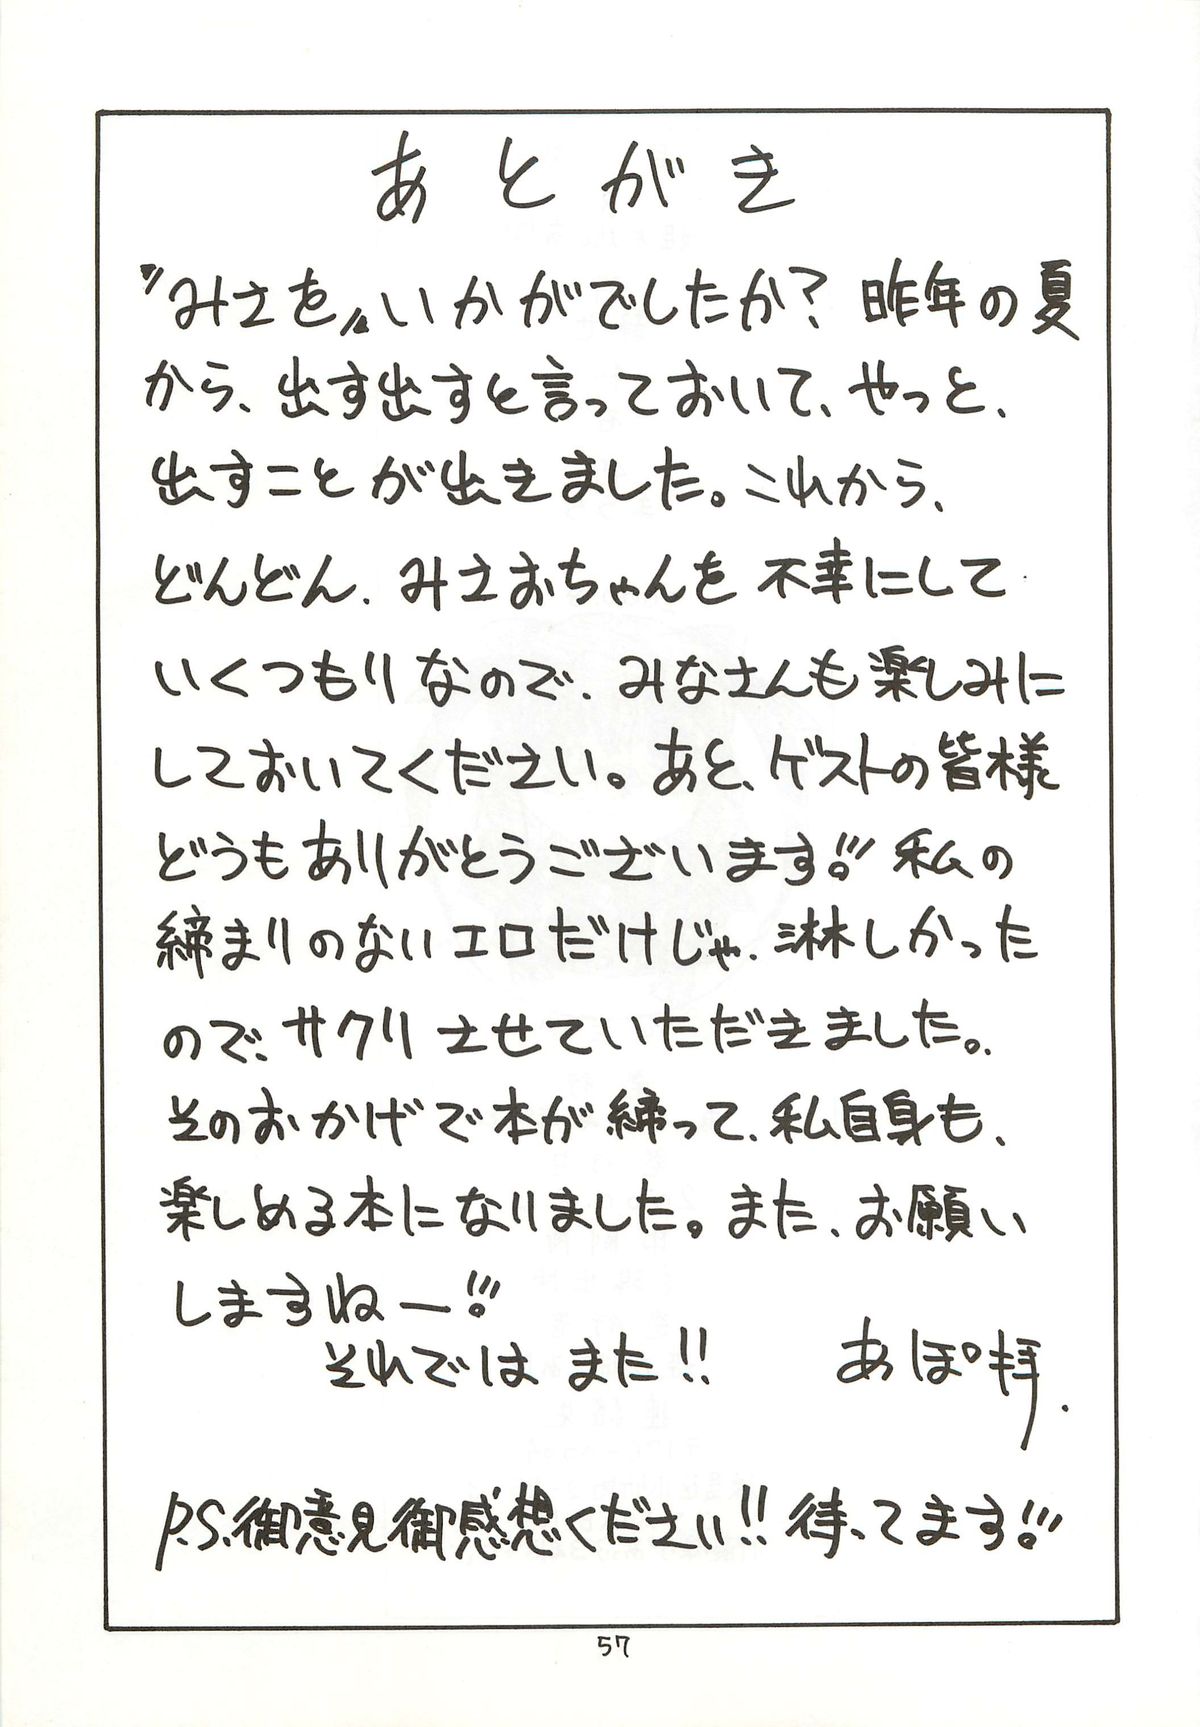 あとがき
〝みさを〟いかがでしたか？昨年の夏
から、出す出すと言っておいて、やっと、
出すことが出きました。これから、
どんどん、みさおちゃんを不幸にして
いくつもりなので、みなさんも楽しみに
しておいてください。あと、ゲストの皆様
どうもありがとうございます!!私の
締まりのないエロだけじゃ、淋しかった
ので、サクリさせていただきました。
そのおかげで本が締って、私自身も、
楽しめる本になりました。また、お願い
しますねー!!!
それではまた!!　あぽ拝.
P.S.御意見御感想ください!!待ってます!!!
57